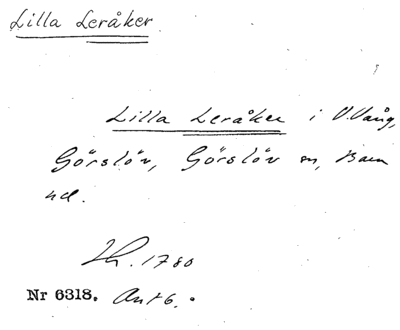 Lilla Leråker
Lilla Leråker i V. Vång,
Görslöv, Görslöv sn, Bara
hd.
1780
Nr 6318. Akt 6.